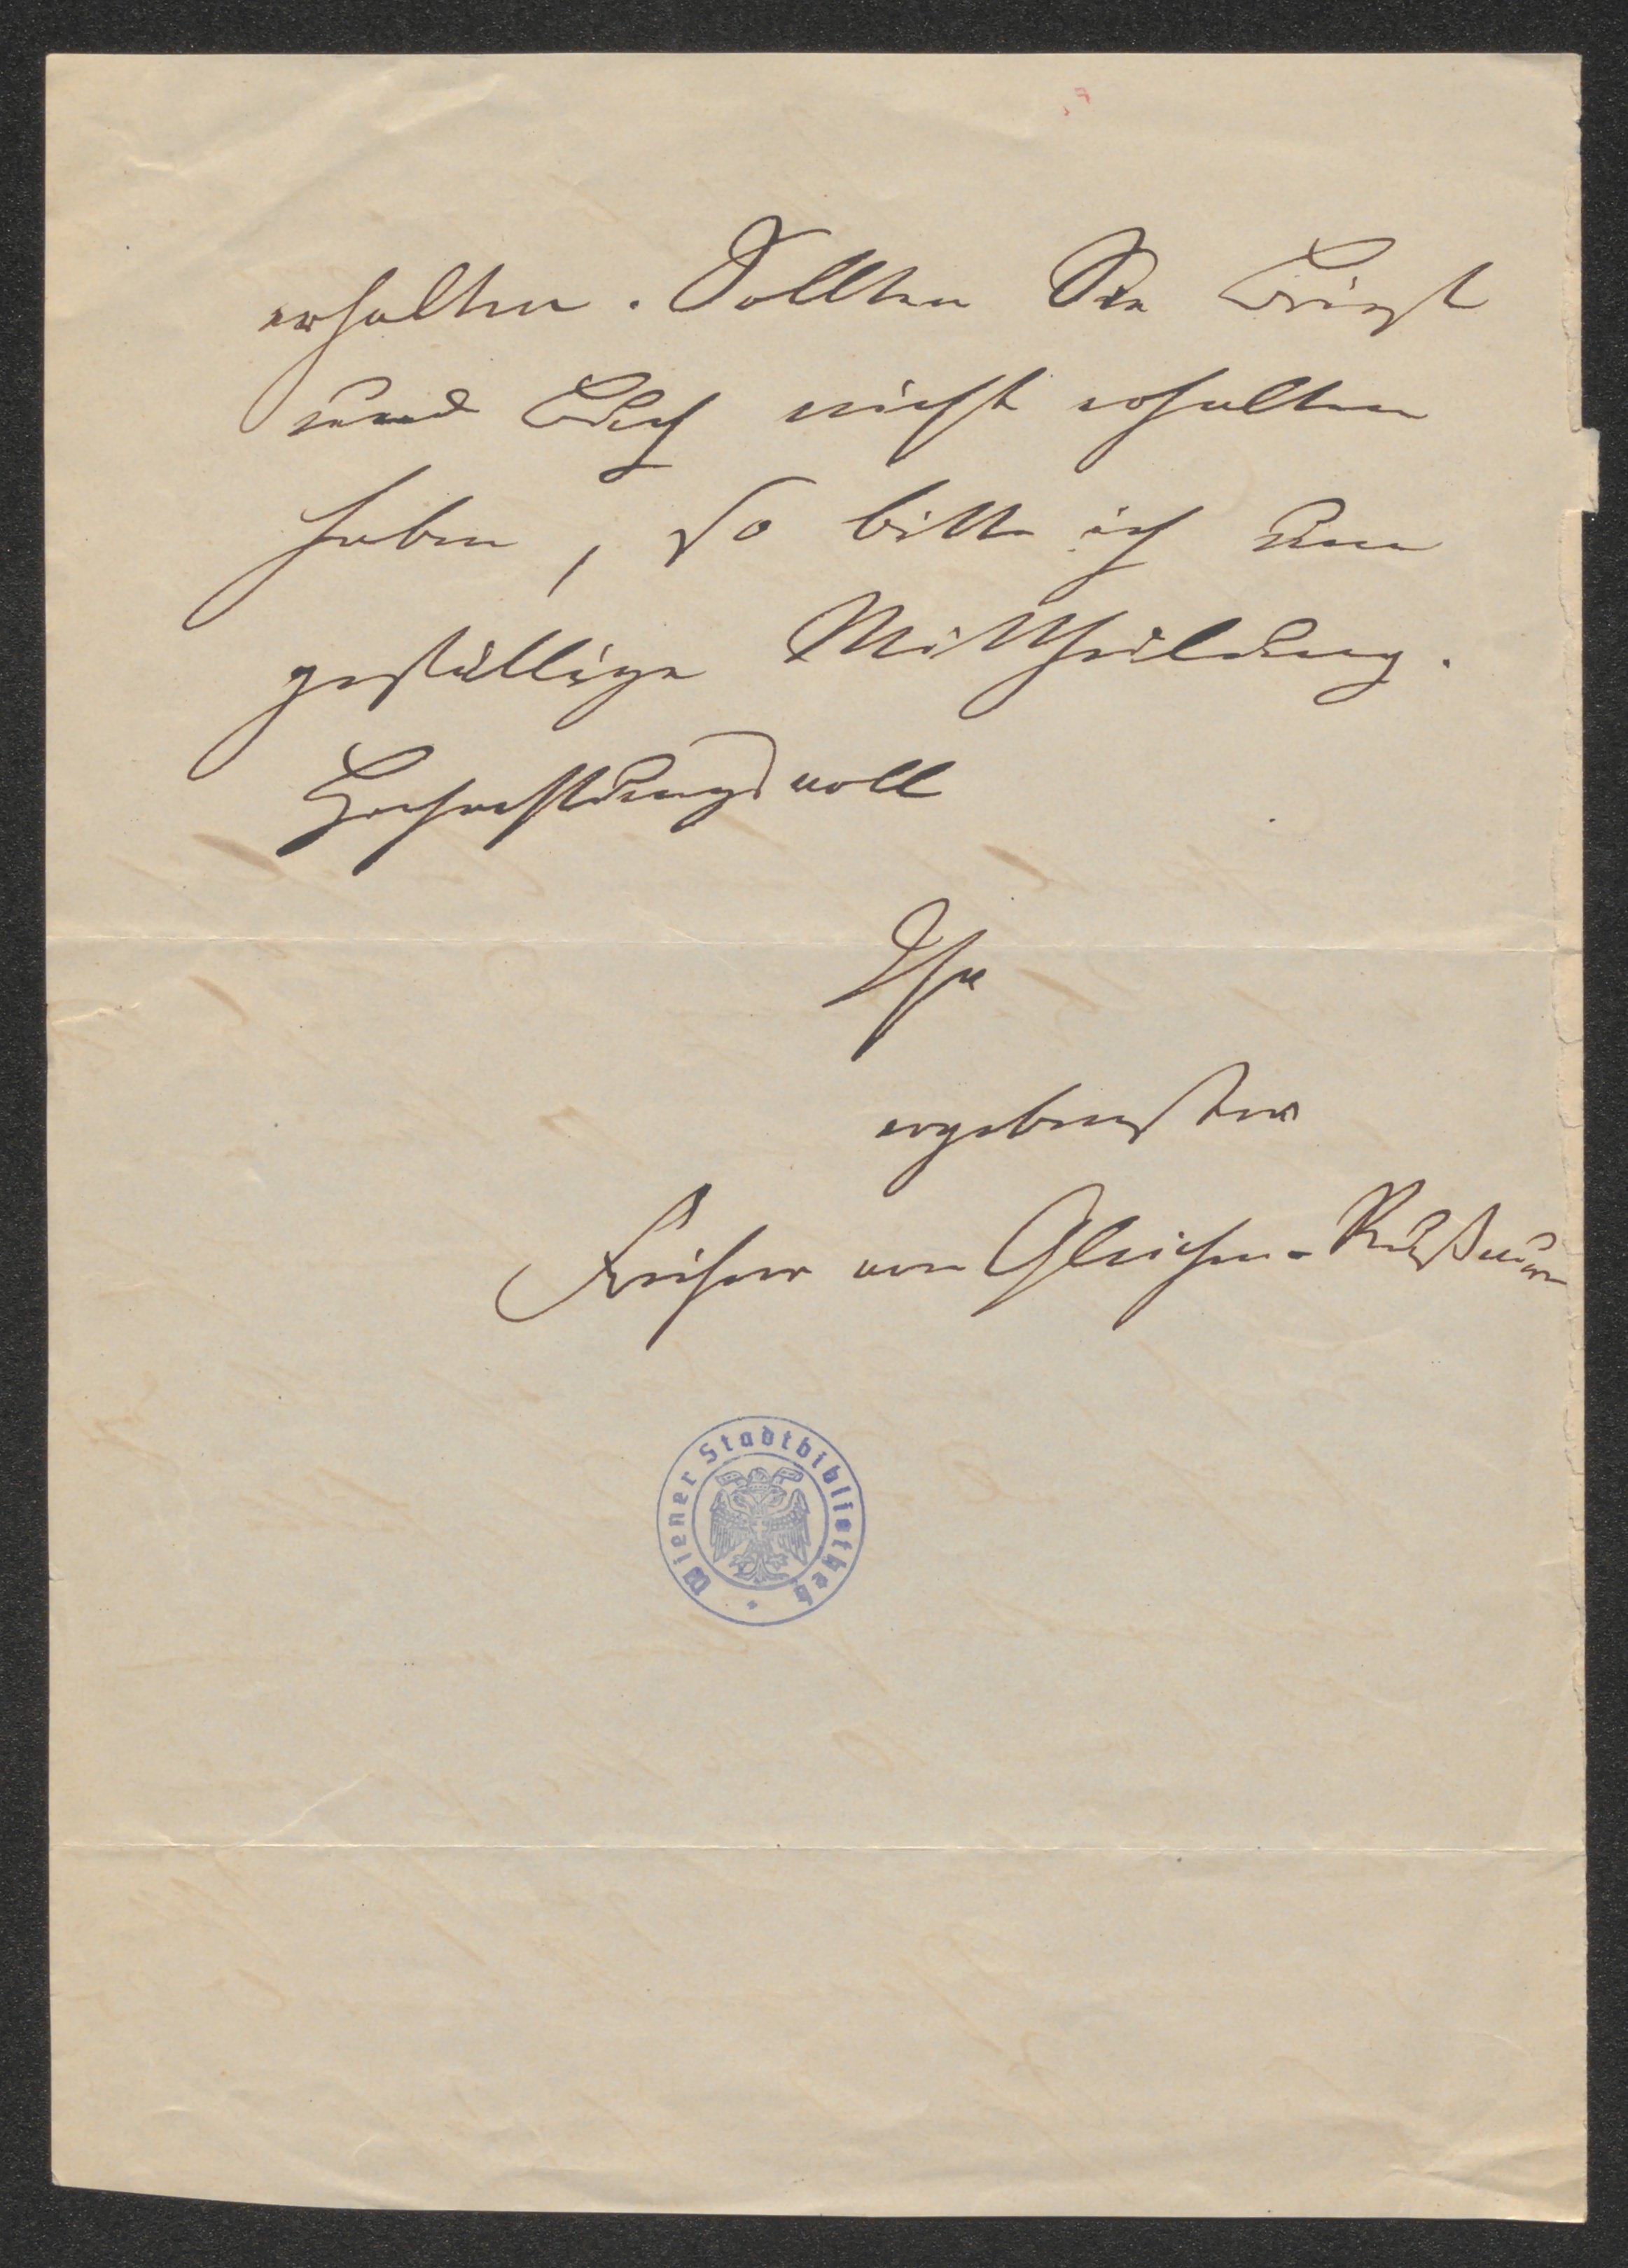 erhalten. Sollten Sie Brief
und Buch nicht erhalten
haben, so bitte ich um
gefällige Mittheilung.
Hochachtungsvoll
Ihr
ergebenster
Freiherr von Gleichen-Rußwurm
Wiener Stadtbibliothek